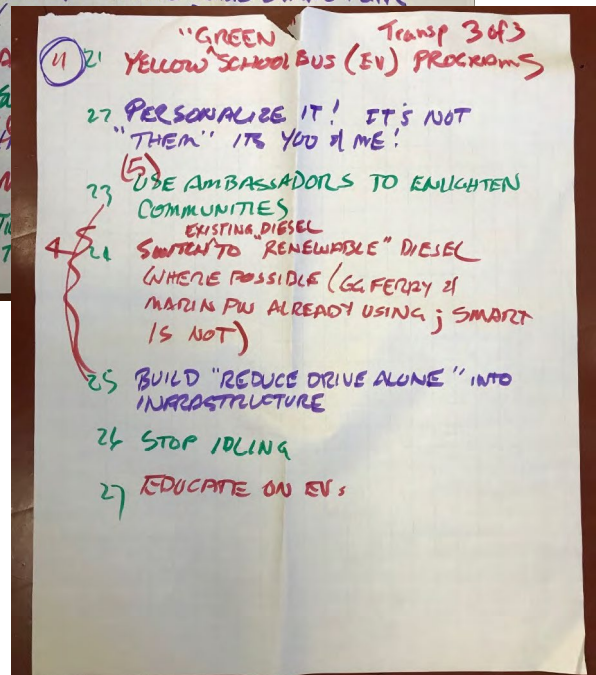 "GREEN Transp 3 of 3
4 21 YELLOW ^ SCHOOL BUS (EV) PROGRAMS
22 PERSONALIZE IT! IT'S NOT
"THEM" ITS YOU & ME!
(5)
23 USE AMBASSADORS TO ENLIGHTEN
COMMUNITIES
EXISTING DIESEL
4 24 SWITCH TO "RENEWABLE" DIESEL
WHERE POSSIBLE (GG FERRY &
MARIN PW ALREADY USING; SMART
IS NOT)
25 BUILD "REDUCE DRIVE ALONE" INTO
INFRASTRUCTURE
26 STOP IDLING
27 EDUCATE ON EVs